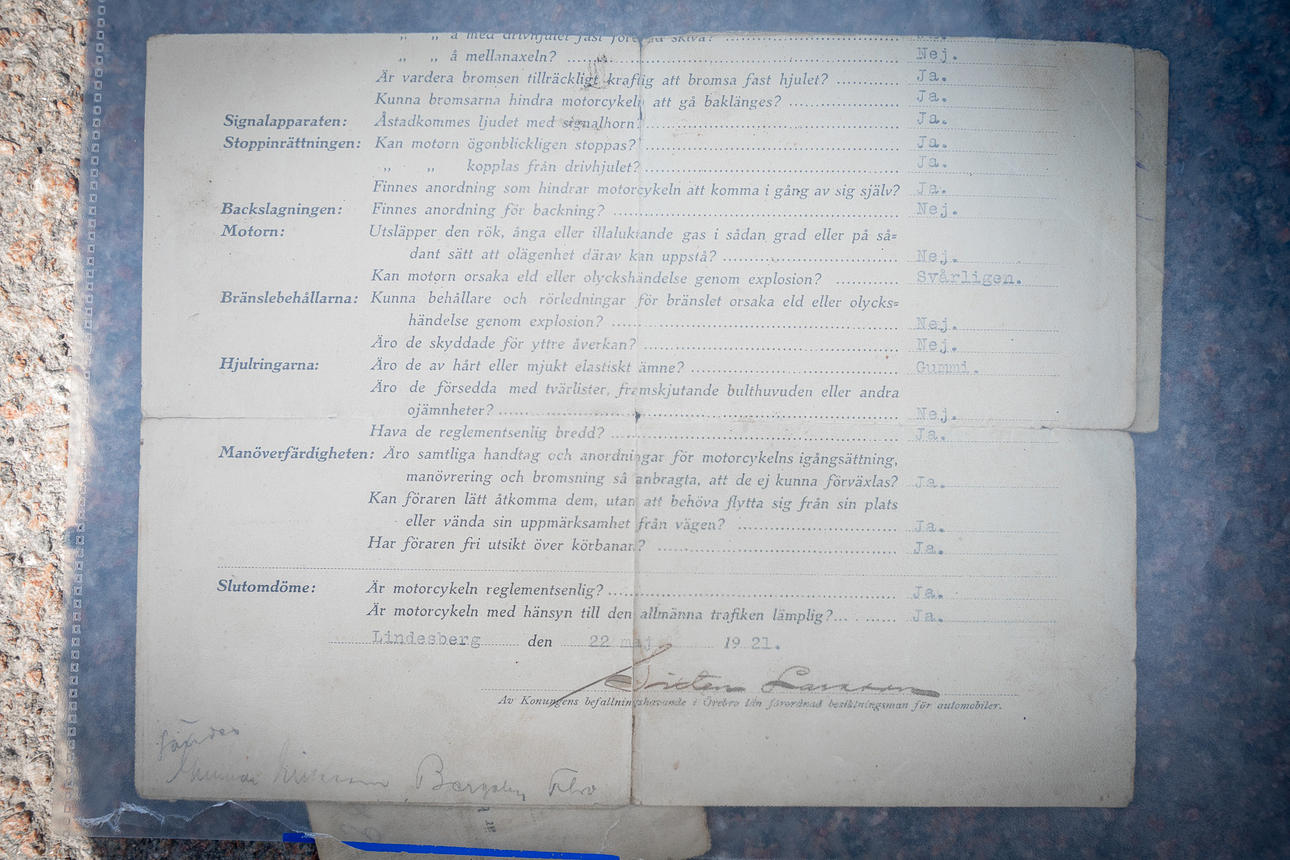 „ „ å med drivhjulet fast skiva?
„ „ å mellanaxeln? Nej.
Är vardera bromsen tillräckligt kraftig att bromsa fast hjulet? Ja.
Kunna bromsarna hindra motorcykeln att gå baklänges? Ja.
Signalapparaten: Åstadkommes ljudet med signalhorn? Ja.
Stoppinrättningen: Kan motorn ögonblickligen stoppas? Ja.
„ „ kopplas från drivhjulet? Ja.
Finnes anordning som hindrar motorcykeln att komma i gång av sig själv? Ja.
Backslagningen: Finnes anordning för backning? Nej.
Motorn: Utsläpper den rök, ånga eller illaluktande gas i sådan grad eller på så=
dant sätt att olägenhet därav kan uppstå? Nej.
Kan motorn orsaka eld eller olyckshändelse genom explosion? Svårligen.
Bränslebehållarna: Kunna behållare och rörledningar för bränslet orsaka eld eller olycks=
händelse genom explosion? Nej.
Äro de skyddade för yttre åverkan? Nej.
Hjulringarna: Äro de av hårt eller mjukt elastiskt ämne? Gummi.
Äro de försedda med tvärlister, framskjutande bulthuvuden eller andra
ojämnheter? Nej.
Hava de reglementsenlig bredd? Ja.
Manöverfärdigheten: Äro samtliga handtag och anordningar för motorcykelns igångsättning,
manövrering och bromsning så anbragta, att de ej kunna förväxlas? Ja.
Kan föraren lätt åtkomma dem, utan att behöva flytta sig från sin plats
eller vända sin uppmärksamhet från vägen? Ja.
Har föraren fri utsikt över körbanan? Ja.
Slutomdöme: Är motorcykeln reglementsenlig? Ja.
Är motorcykeln med hänsyn till den allmänna trafiken lämplig? Ja.
Lindesberg den 22 maj 1921.
Larsson
Av Konungens befallningshavande i Örebro län förordnad besiktningsman för automobiler.